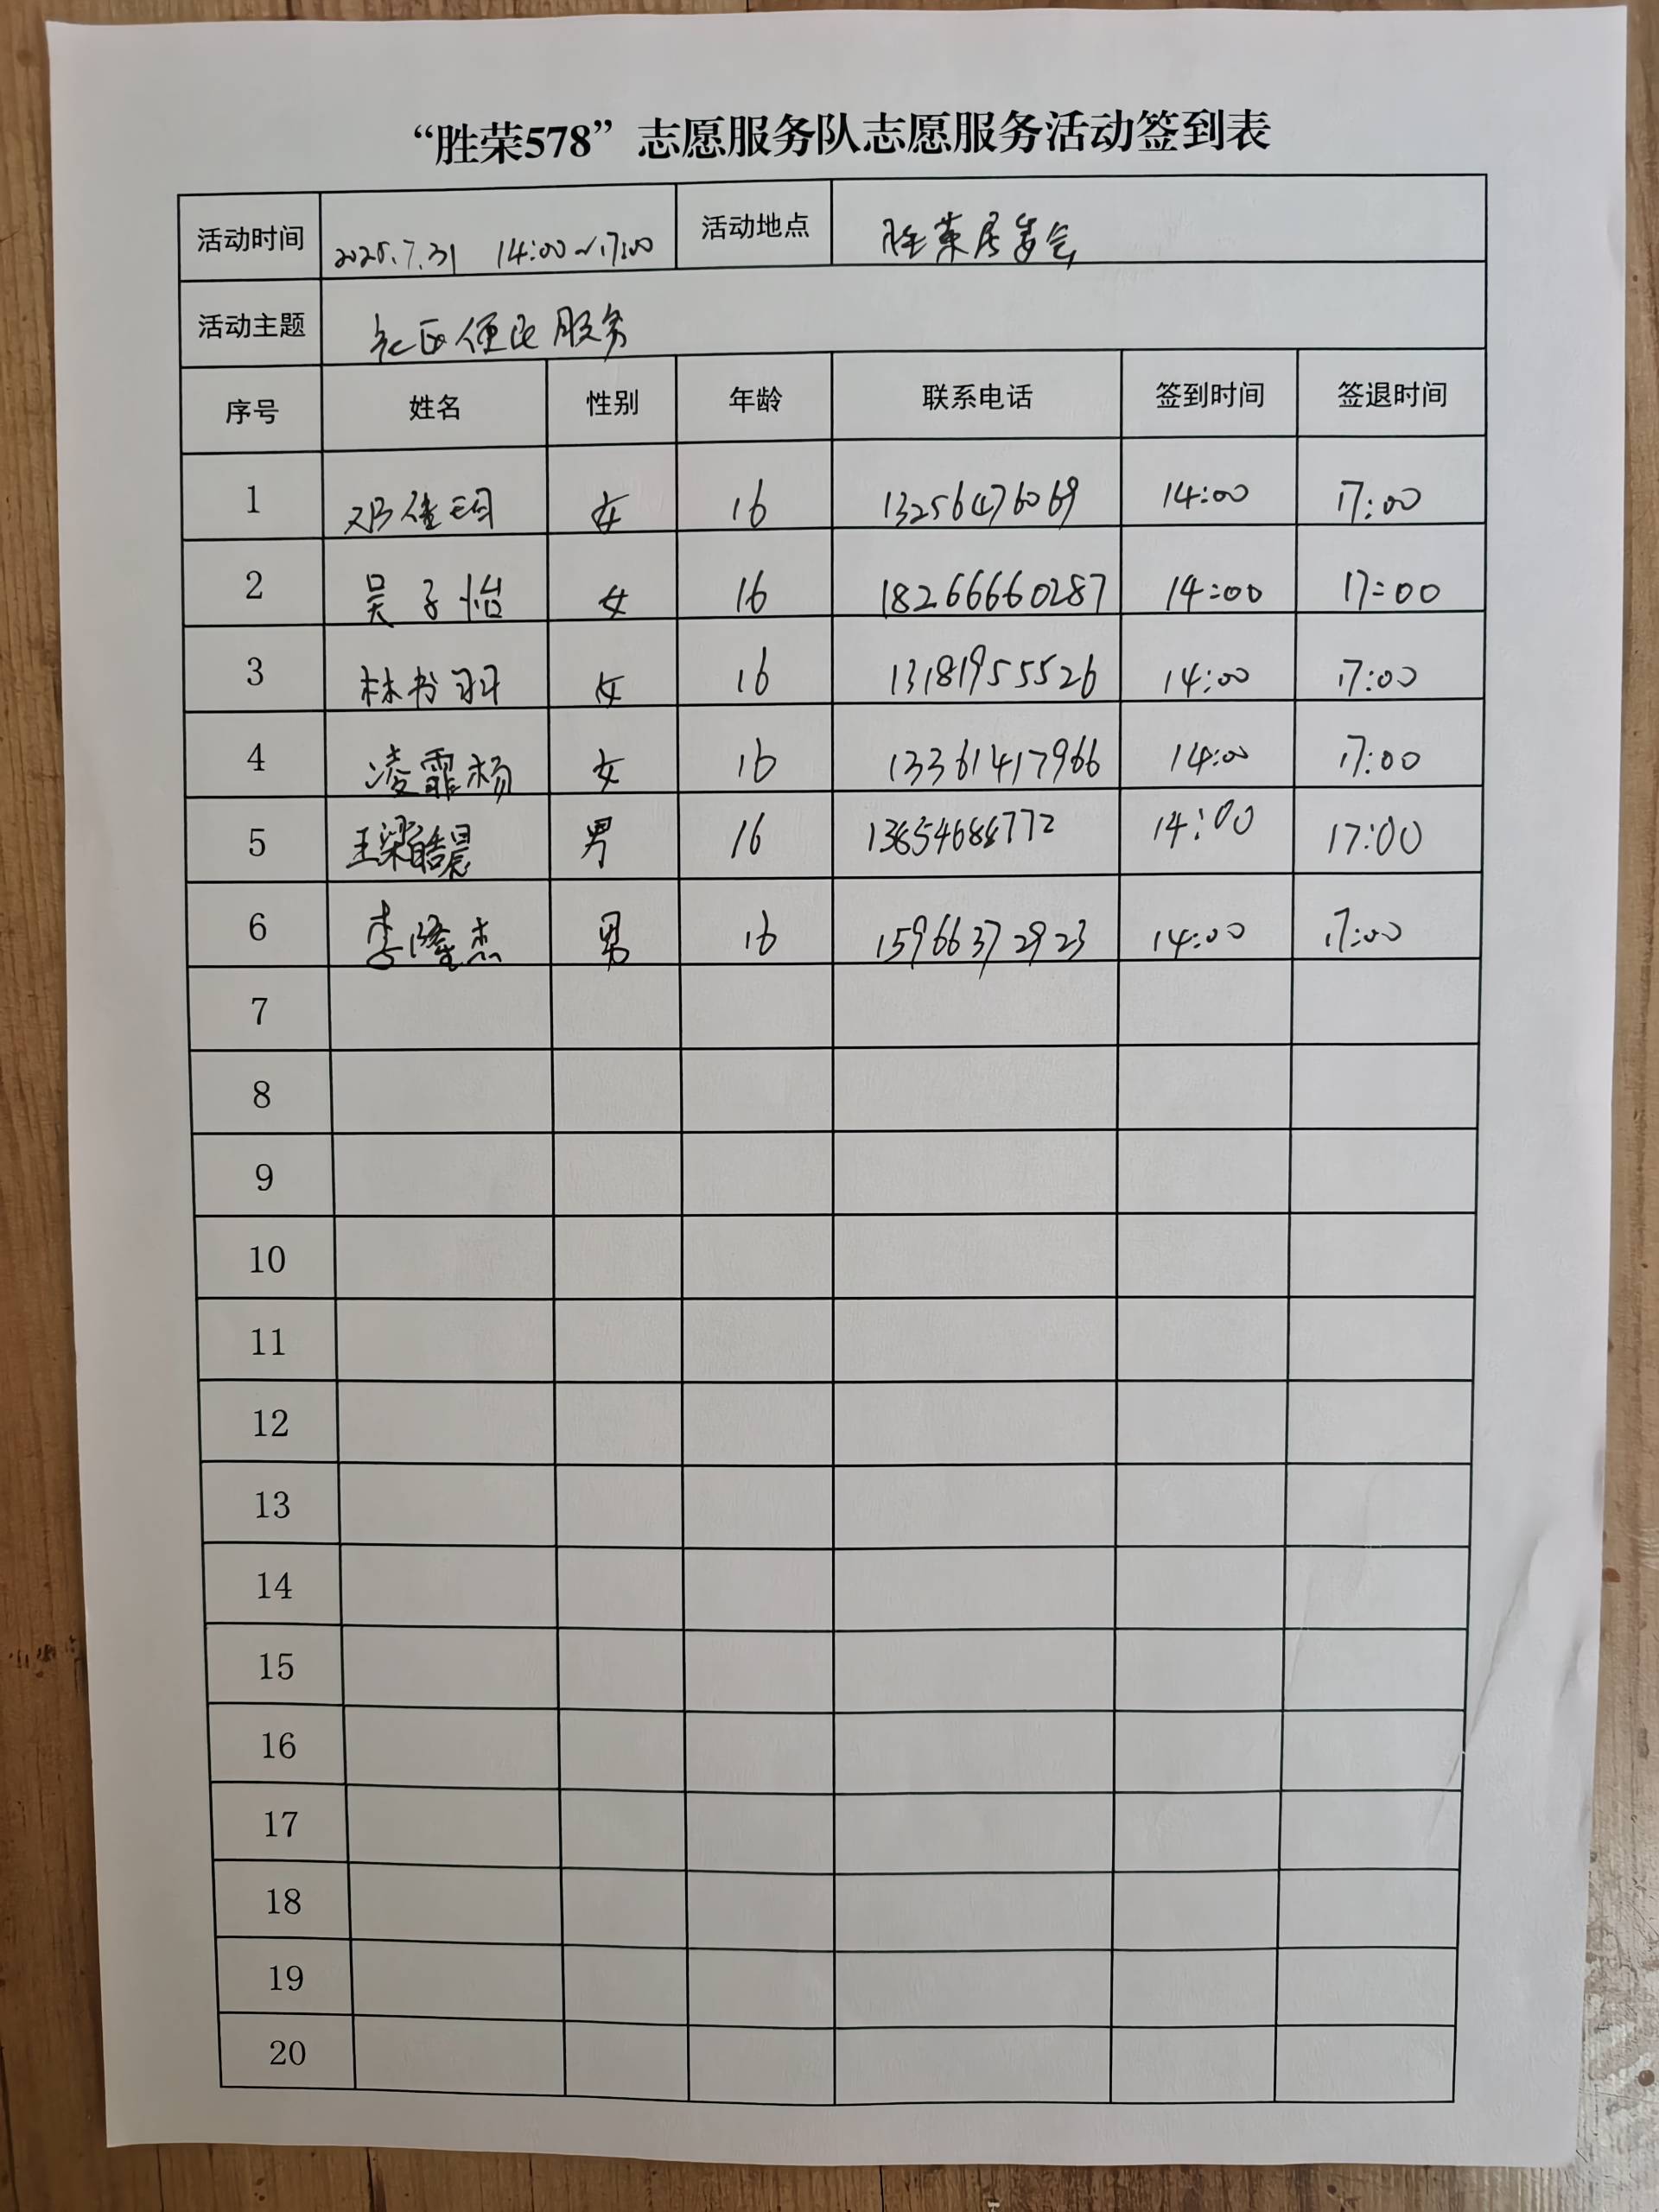 “胜荣578”志愿服务队志愿服务活动签到表
活动时间 2025.7.31 14:00~17:00 活动地点 胜荣居委会
活动主题 社区便民服务
序号 姓名 性别 年龄 联系电话 签到时间 签退时间
1 邓佳玥 女 16 13256476069 14:00 17:00
2 吴子怡 女 16 18266660287 14:00 17:00
3 林书羽 女 16 13181955526 14:00 17:00
4 凌霏杨 女 16 13361417966 14:00 17:00
5 王梁皓晨 男 16 14:00 17:00
6 李隆杰 男 16 15966372923 14:00 17:00
7
8
9
10
11
12
13
14
15
16
17
18
19
20